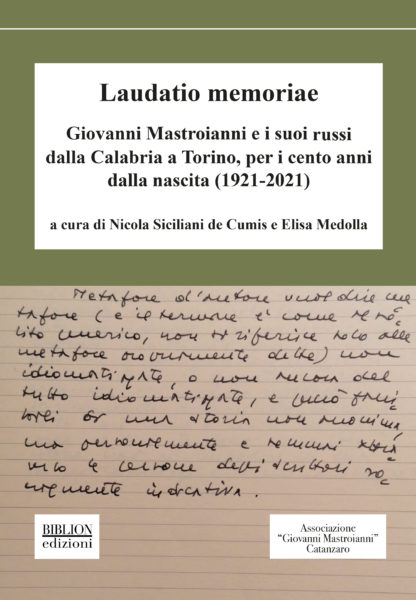 Laudatio memoriae
Giovanni Mastroianni e i suoi russi
dalla Calabria a Torino, per i cento anni
dalla nascita (1921-2021)
a cura di Nicola Siciliani de Cumis e Elisa Medolla
Metafore d'autore vuol dire me
tafore (e il termine è come
generico, non si riferisce solo alle
metafore propriamente dette) non
idiomatizzate, o non ancora del
tutto idiomatizzate, e perciò
di una storia non anonima
ma
degli scrittori
indicativa.
BIBLION
edizioni
Associazione
"Giovanni Mastroianni"
Catanzaro